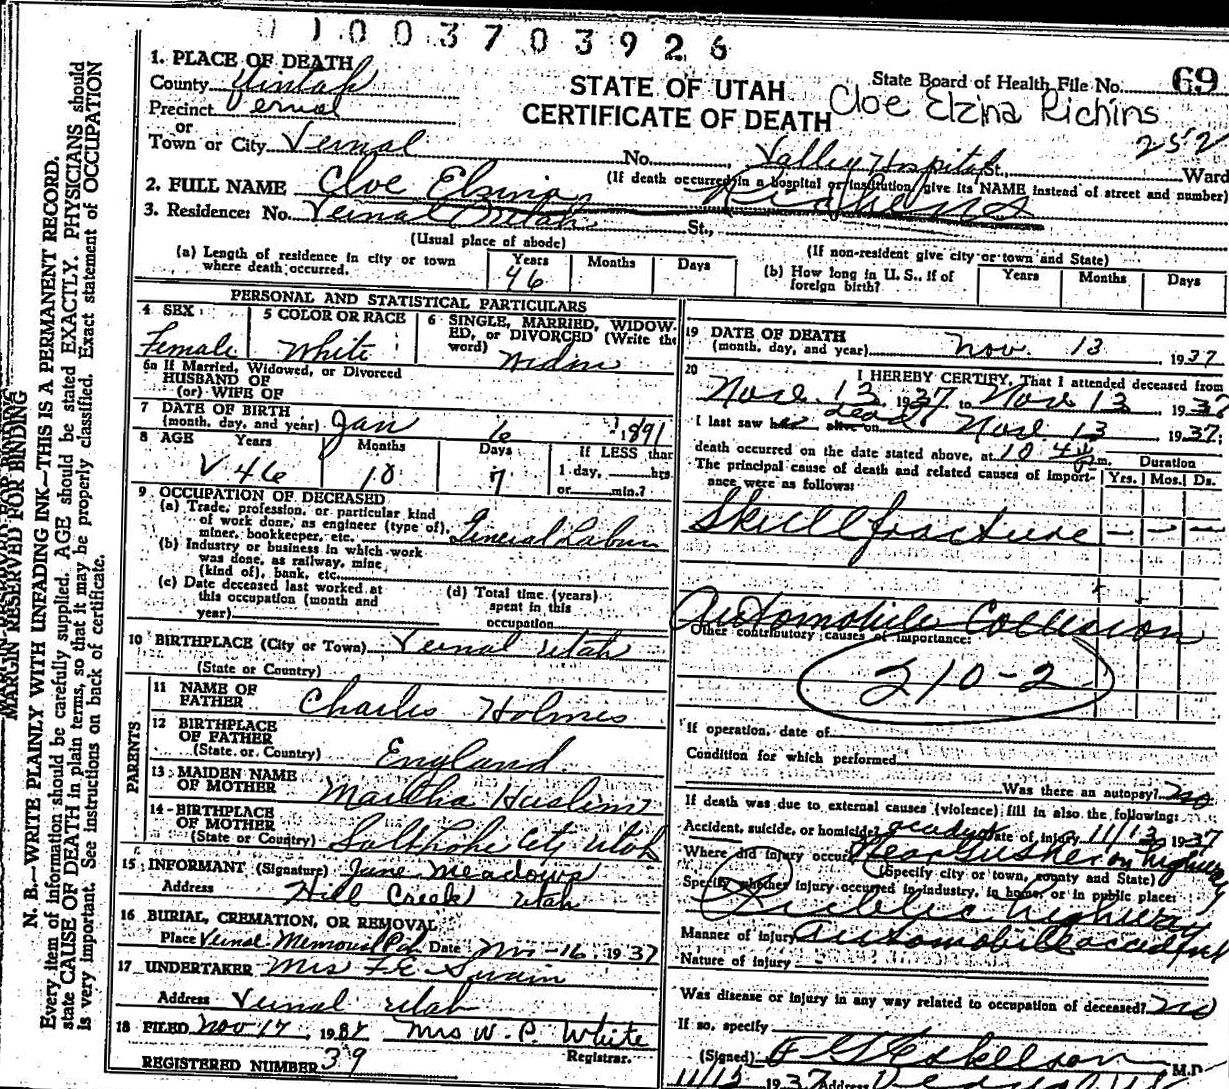 0 1 0 0 3 7 0 3 9 2 6
1. PLACE OF DEATH
County Uintah
Precinct Vernal
or
Town or City Vernal
STATE OF UTAH
CERTIFICATE OF DEATH
State Board of Health File No. 69
Cloe Elzina Richins
252
No. Valley Hospital St., Ward
(If death occurred in a hospital or institution, give its NAME instead of street and number)
2. FULL NAME Cloe Elzina Richens
3. Residence: No. Vernal Utah St.,
(Usual place of abode)
(If non-resident give city or town and State)
(a) Length of residence in city or town
where death occurred.
Years Months Days
46
(b) How long in U. S., if of
foreign birth?
Years Months Days
PERSONAL AND STATISTICAL PARTICULARS
4 SEX
Female
5 COLOR OR RACE
White
6 SINGLE, MARRIED, WIDOW-
ED, or DIVORCED (Write the
word) Widow
6a If Married, Widowed, or Divorced
HUSBAND OF
(or) WIFE OF
7 DATE OF BIRTH
(month, day, and year) Jan 6 1891
8 AGE Years Months Days If LESS than
46 10 7 1 day, hrs.
or min.?
9 OCCUPATION OF DECEASED
(a) Trade, profession, or particular kind
of work done, as engineer (type of),
miner, bookkeeper, etc. General Labor
(b) Industry or business in which work
was done, as railway, mine
(kind of), bank, etc.
(c) Date deceased last worked at
this occupation (month and
year)
(d) Total time (years)
spent in this
occupation
10 BIRTHPLACE (City or Town) Vernal Utah
(State or Country)
PARENTS
11 NAME OF
FATHER Charles Holmes
12 BIRTHPLACE
OF FATHER
(State or Country) England
13 MAIDEN NAME
OF MOTHER Martha
14 BIRTHPLACE
OF MOTHER
(State or Country) Salt Lake City Utah
15 INFORMANT (Signature) June Meadows
Address Hill Creek Utah
16 BURIAL, CREMATION, OR REMOVAL
Place Vernal Memorial Date Nov-16 1937
17 UNDERTAKER Mrs F E Swain
Address Vernal Utah
18 FILED Nov 17, 1937 Mrs W. P. White
Registrar.
REGISTERED NUMBER 39
19 DATE OF DEATH
(month, day, and year) Nov. 13 1937
20 I HEREBY CERTIFY, That I attended deceased from
Nov. 13 1937 to Nov 13 1937
I last saw her dead alive on Nov 13 1937.
death occurred on the date stated above, at 10 P.m.
The principal cause of death and related causes of import-
ance were as follows:
Duration
Yrs. Mos. Ds.
Skull fracture — — —
Automobile Collision
Other contributory causes of importance:
210-2
If operation, date of
Condition for which performed
Was there an autopsy? no
If death was due to external causes (violence) fill in also the following:
Accident, suicide, or homicide? accident Date of injury 11/13 1937
Where did injury occur? Near Gusher on highway
(Specify city or town, county and State)
Specify whether injury occurred in industry, in home, or in public place:
Public highway
Manner of injury Automobile accident
Nature of injury
Was disease or injury in any way related to occupation of deceased? no
If so, specify
(Signed) M.D.
11/15 1937 Address
MARGIN RESERVED FOR BINDING
N. B.—WRITE PLAINLY WITH UNFADING INK—THIS IS A PERMANENT RECORD.
Every item of information should be carefully supplied. AGE should be stated EXACTLY. PHYSICIANS should
state CAUSE OF DEATH in plain terms, so that it may be properly classified. Exact statement of OCCUPATION
is very important. See instructions on back of certificate.